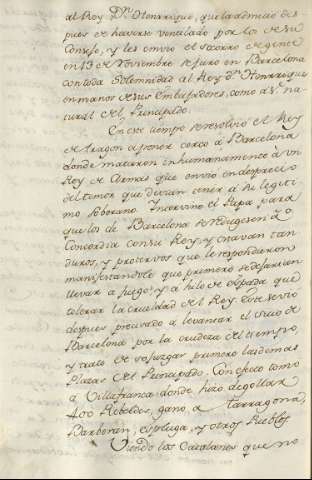 al Rey Dn. Henrrique, que la admitio des
pues de haverse ventilado por los de su
Consejo, y les envió el socorro de gente
en 13 de Noviembre se juro en Barcelona
con toda Solemnidad al Rey Dn. Henrrique
en manos de sus Embajadores, como a Sr. na-
tural del Principado.
En este tiempo se resolvió el Rey
de Aragon a poner cerco a Barcelona
donde mataron inhumanamente á un
Rey de Armas que envió en desprecio
del temor que devian tener á su legiti
mo Soberano. Intervino el Papa para
que los de Barcelona se redugesen a
Concordia con su Rey, y estavan tan
duros, y protervos que le respondieron
manifestandole que primero se dejarian
llevar a fuego, y a hilo de espada que
tolerar la crueldad del Rey. Este se vio
despues precisado a levantar el sitio de
Barcelona por la crudeza del tiempo,
y trato de sojuzgar primero las demas
Plazas del Principado. Con efecto tomo
a Villafranca donde hizo degollar
400 Rebeldes, gano a Tarragona,
Barberan, Espluga, y otros Pueblos
Viendo los Catalanes que no